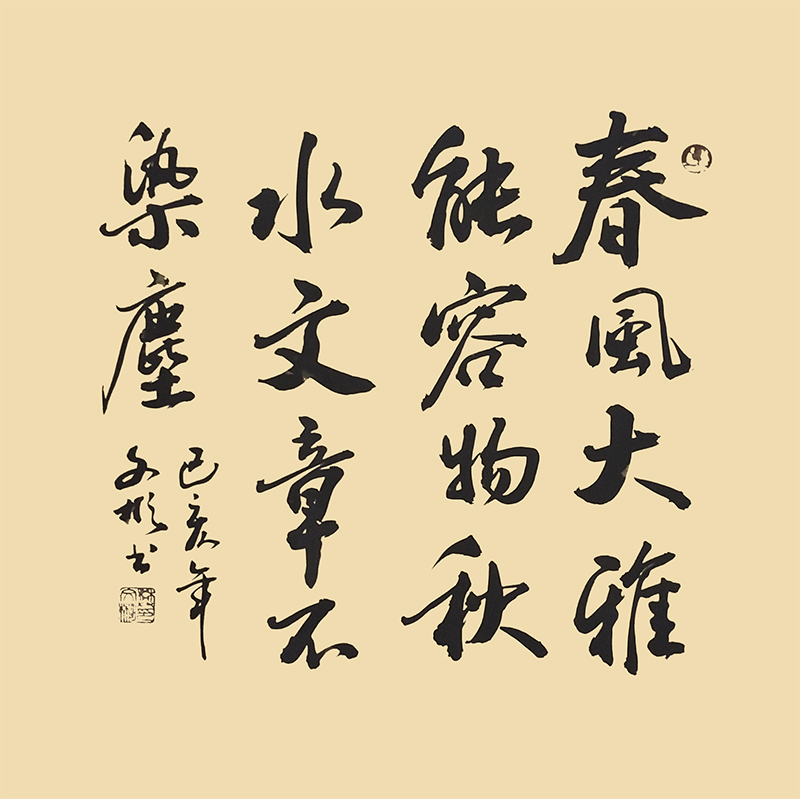 春風大雅
能容物秋
水文章不
染塵
己亥年
文彬書